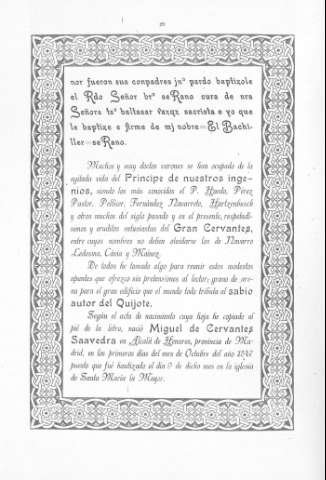 nor fueron sus conpadres jnº pardo baptizole
el Rdo Señor brº seRano cura de nra
Señora tsº baltasar vazqz sacrista e yo que
le baptize e firme de mj nobre=El Bachi-
ller=seRano.
Muchos y muy doctos varones se han ocupado de la
agitada vida del Príncipe de nuestros inge-
nios, siendo los más conocidos el P. Haedo, Pérez
Pastor, Pellicer, Fernández Navarrete, Hartzenbusch
y otros muchos del siglo pasado y en el presente, respetabilí-
simos y eruditos entusiastas del Gran Cervantes,
entre cuyos nombres no deben olvidarse los de Navarro
Ledesma, Cávia y Máinez.
De todos he tomado algo para reunir estos modestos
apuntes que ofrezco sin pretensiones al lector; grano de are-
na para el gran edificio que el mundo todo tributa al sabio
autor del Quijote.
Según el acta de nacimiento cuya hoja he copiado al
pié de la letra, nació Miguel de Cervantes
Saavedra en Alcalá de Henares, provincia de Ma-
drid, en los primeros días del mes de Octubre del año 1547
puesto que fué bautizado el día 9 de dicho mes en la iglesia
de Santa María la Mayor.